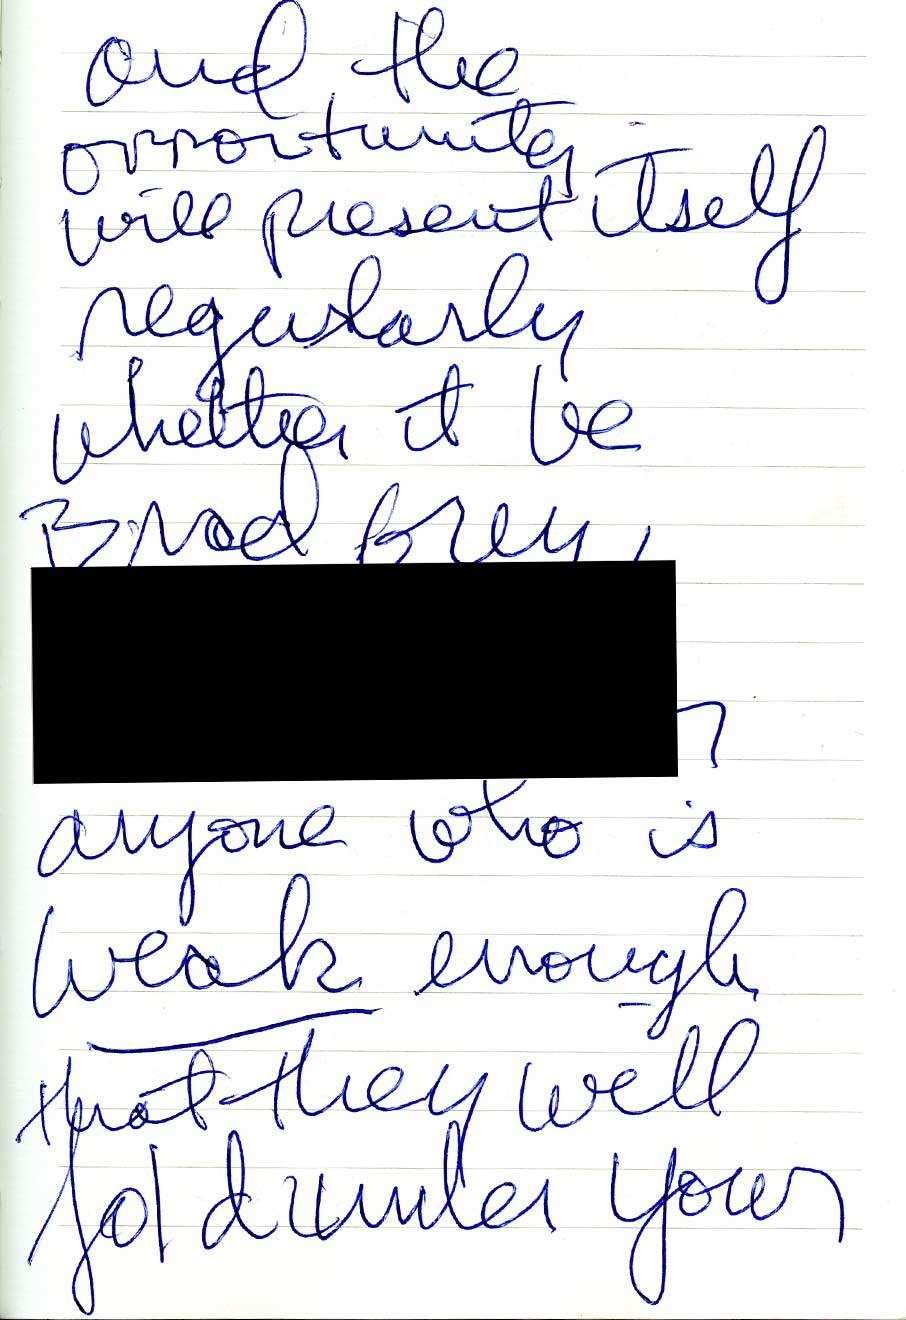 and the
opportunity
will present itself
regularly
whether it be
Brad Brey,
anyone who is
weak enough
that they will
fold under your